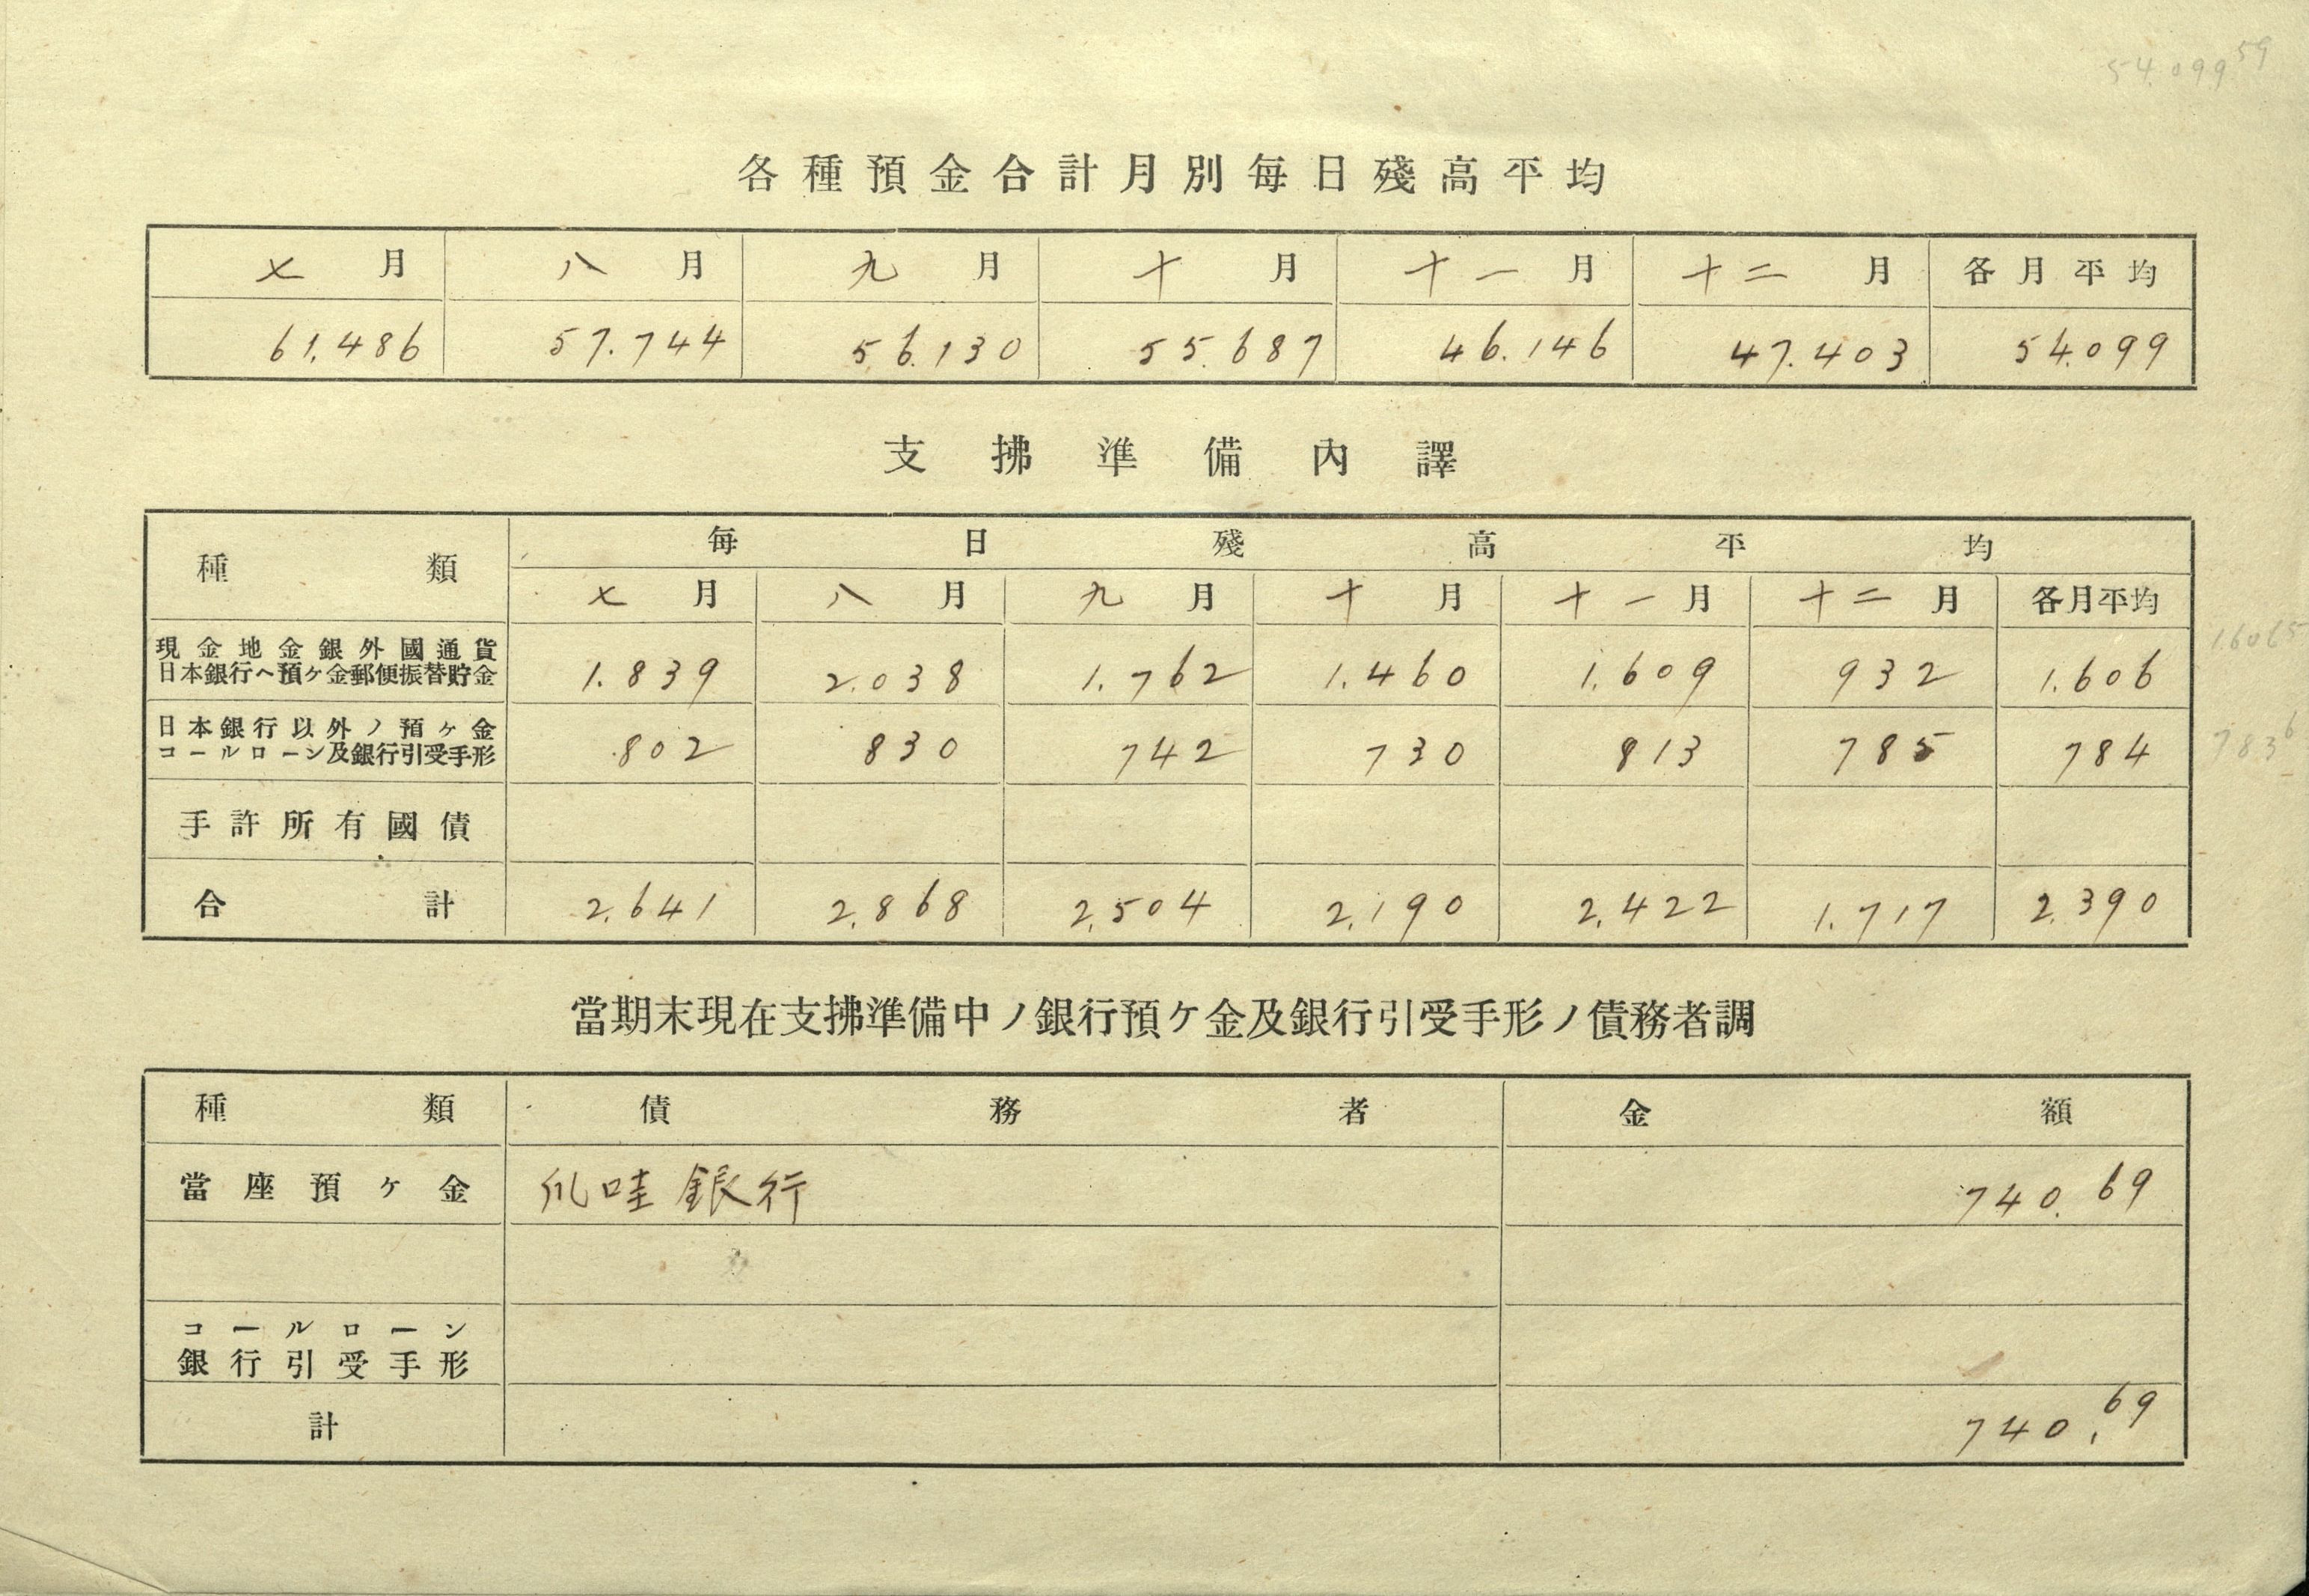 54.099 59
各種預金合計月別每日殘高平均
七月 八月 九月 十月 十一月 十二月 各月平均
61.486 57.744 56.130 55.687 46.146 47.403 54.099
支拂準備內譯
種類 每日殘高平均
七月 八月 九月 十月 十一月 十二月 各月平均
現金地金銀外國通貨
日本銀行ヘ預ヶ金郵便振替貯金 1.839 2.038 1.762 1.460 1.609 932 1.606 16065
日本銀行以外ノ預ヶ金
コールローン及銀行引受手形 802 830 742 730 813 785 784 783 6
手許所有國債
合計 2.641 2.868 2.504 2.190 2.422 1.717 2.390
當期末現在支拂準備中ノ銀行預ケ金及銀行引受手形ノ債務者調
種類 債務者 金額
當座預ヶ金 爪哇銀行 740.69
コールローン
銀行引受手形
計 740.69